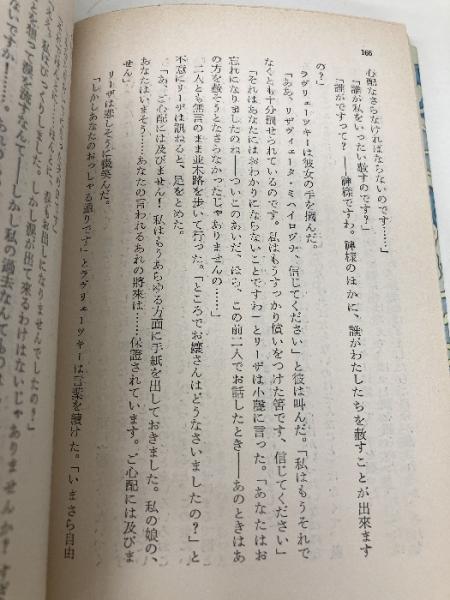 166
心配なさらなければならないのです……」
「誰が私をいったい赦すのです?」
「誰がですって?――神様ですわ。神様のほかに、誰がわたしたちを赦すことが出来ます
の?」
ラヴリェーツキーは彼女の手を摑んだ。
「ああ、リザヴィェータ・ミハイロヴナ、信じてください」と彼は叫んだ。「私はもうそれで
なくとも十分罰せられているのです。私はもうすっかり償いをつけた筈です、信じてください」
「それはあなたにはおわかりにならないことですわ」とリーザは小聲に言った。「あなたはお
忘れになりましたのね――ついこのあいだ、ほら、この前二人でお話したとき――あのときはあ
の方を赦そうとなさらなかったじゃありませんの……」
二人とも無言のまま並木路を歩いて行った。「ところでお嬢さんはどうなさいましたの?」と
不意にリーザは訊ねると、足をとめた。
「あ、ご心配には及びません!私はもうあらゆる方面に手紙を出しておきました。私の娘の、
あなたはいまそう……あなたの言われるあれの將來は……保證されています。ご心配には及びま
せん」
リーザは悲しそうに微笑んだ。
「しかしあなたのおっしゃる通りです」とラヴリェーツキーは言葉を續けた。「いまさら自由